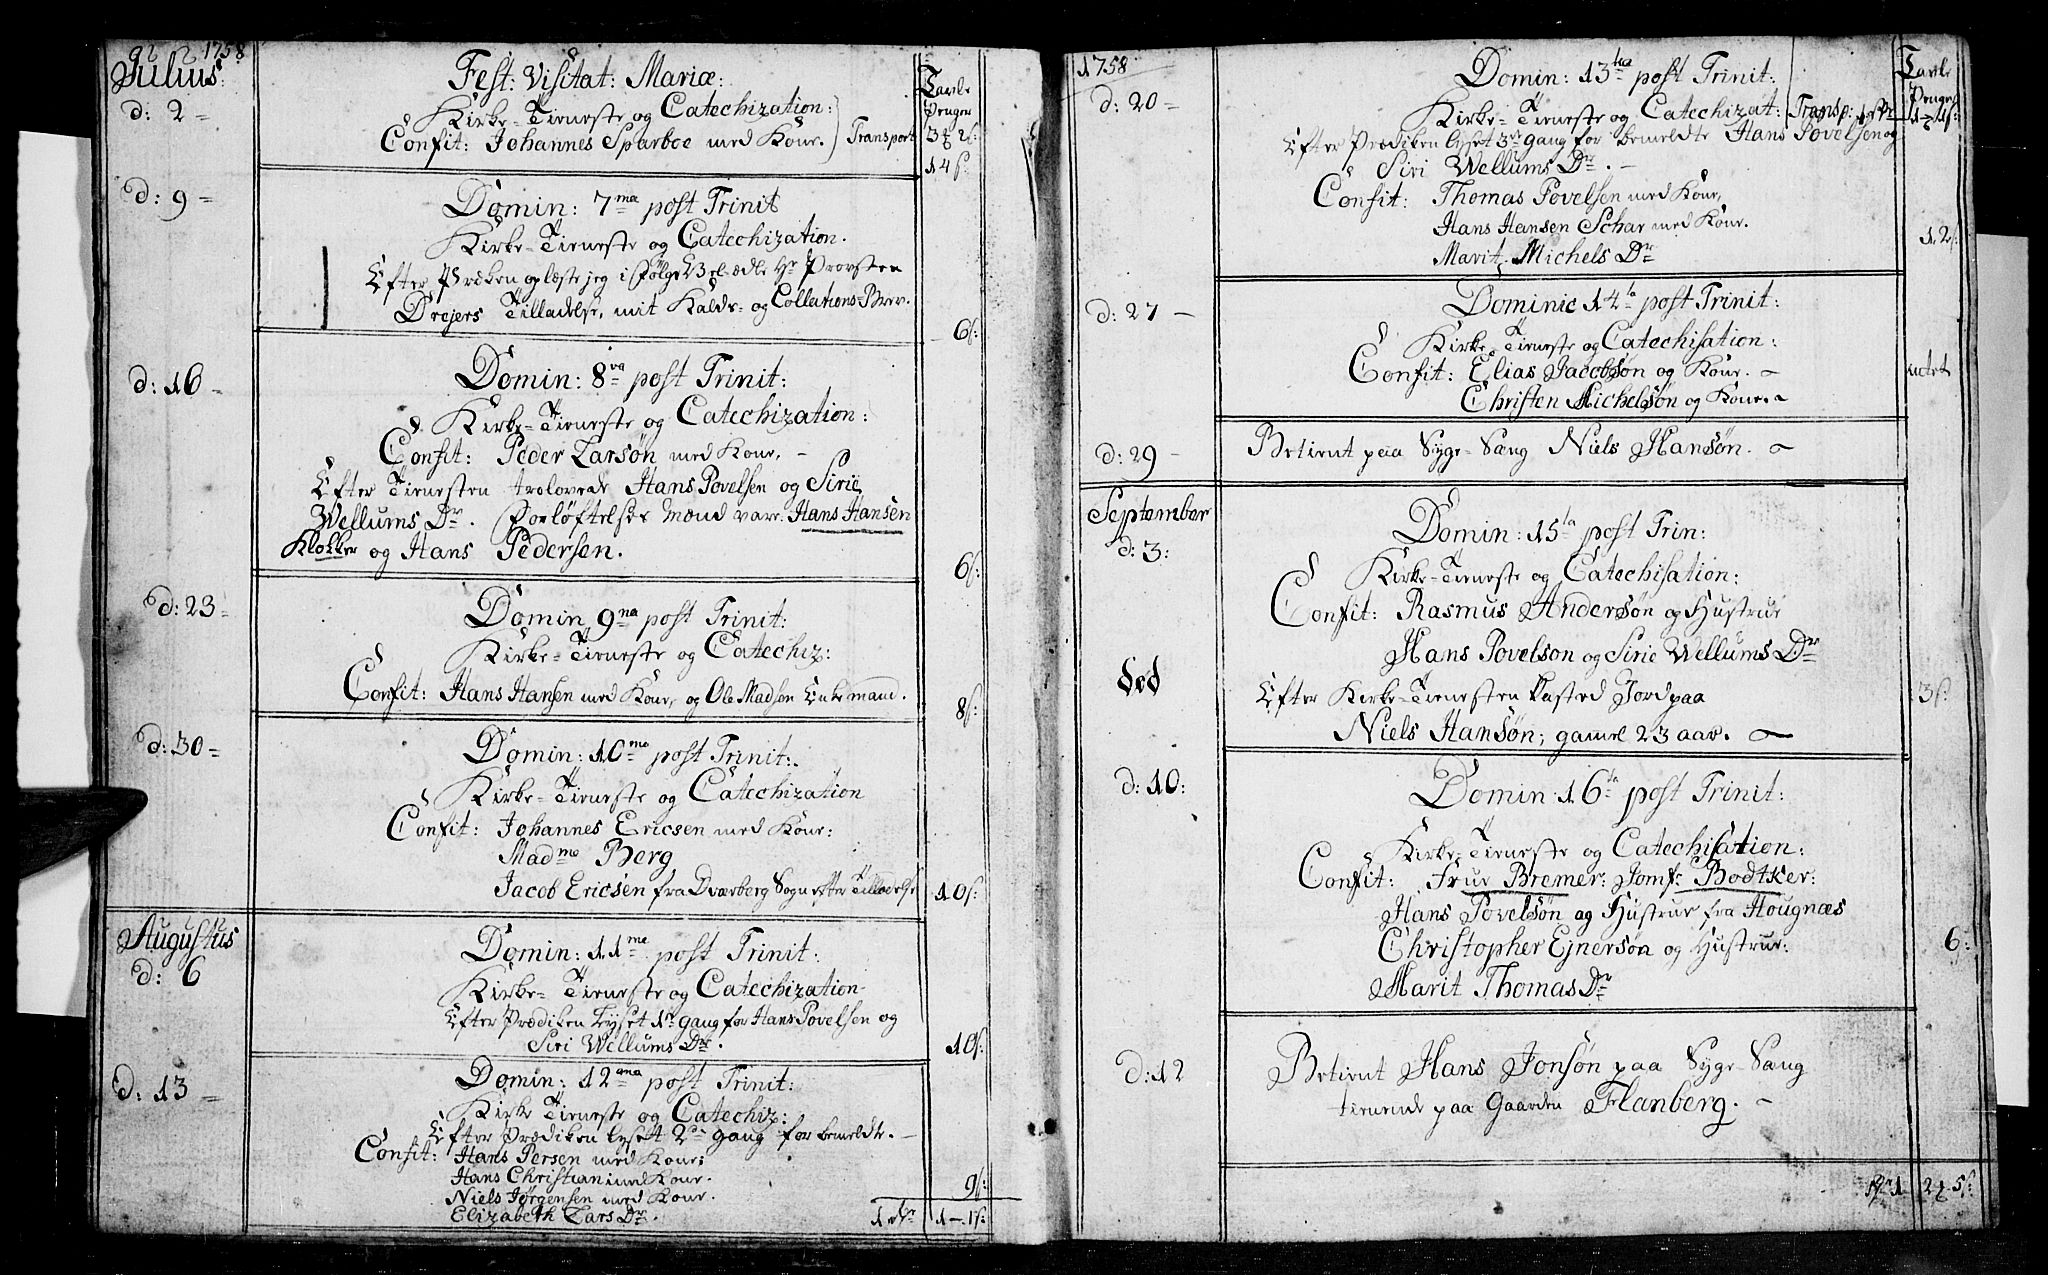 1758
Julius:
Tavle
Penger
d: 2 =
Fest: Visitat: Mariæ:
Kirke-Tieneste og Catechization:
Confit: Johannes Sparboe med Kone. Transport
14 ß:
d: 9 =
Domin: 7ma post Trinit
Kirke-Tieneste og Catechization.
Efter Præken oplæste jeg i følge Vel-ædle Hr Provsten
Drejers Tilladelse, mit Kalds- og Collations-Brev.
6 ß:
d: 16 =
Domin: 8va post Trinit:
Kirke-Tieneste og Catechization:
Confit: Peder Larsøn med Kone. -
Efter Tienesten trolovede Hans Povelsen og Sirie
Wellums Dr. Forløftelses Mænd vare: Hans Hansen
Klokker og Hans Pedersen.
6 ß:
d: 23 =
Domin 9na post Trinit:
Kirke-Tieneste og Catechiz:
Confit: Hans Hansen med Kone, og Ole Madsen Enkemand.
8 ß:
d: 30 =
Domin: 10me post Trinit:
Kirke-Tieneste og Catechization
Confit: Johannes Ericsen med Kone:
Madme Berg
Jacob Ericsen fra Dværberg Sogn efter Tilladelse
10 ß:
Augustus
d: 6
Domin: 11me post Trinit:
Kirke-Tieneste og Catechization
Efter Prædiken lyset 1te gang for Hans Povelsen og
Siri Wellums Dr.
10 ß:
d: 13 =
Domin: 12ma post Trinit:
Kirke Tieneste og Catechiz:
Efter Prædiken lyset 2den gang for bemeldte. -
Confit: Hans Persen med Kone:
Hans Christian med Kone.
Niels Jørgensen med Kone.
Elizabeth Lars Dr.
9 ß:
1758
Tavle
Penge
d: 20 -
Domin: 13tia post Trinit:
Kirke-Tieneste og Catechizat: Transp:
Efter Prædiken lyset 3de gang for bemeldte Hans Povelsen og
Siri Wellums Dr. -
Confit: Thomas Povelsen med Kone,
Hans Hansen Schar med Kone.
Marit Michels Dr
12 ß:
d: 27 -
Dominic 14ta post Trinit:
Kirke-Tieneste og Catechisation:
Confit: Elias Jacobsøn og Kone. -
Christen Michelsøn og Kone. -
intet
d: 29 -
Betient paa Syge-Sæng Niels Hansøn. -
September
d: 3:
Domin: 15ta post Trin:
Kirke-Tieneste og Catechisation:
Confit: Rasmus Andersøn og Hustrue
Hans Povelson og Sirie Wellums Dr
Død
Efter Kirke-Tienesten kasted Jord paa
Niels Hansøn, gamel 23 aar. -
3 ß:
d: 10:
Domin: 16ta post Trinit:
Kirke-Tieneste og Catechisation:
Confit: Frue Bremer: Jomf: Bodtker:
Hans Povelsøn og Hustrue fra Hougnæs
Christopher Ejnersøn og Hustrue:
Marit Thomas Dr
6:
d: 12
Betient Hans Jonsøn paa Syge-Sæng
tienende paa Gaarden Flanberg. -